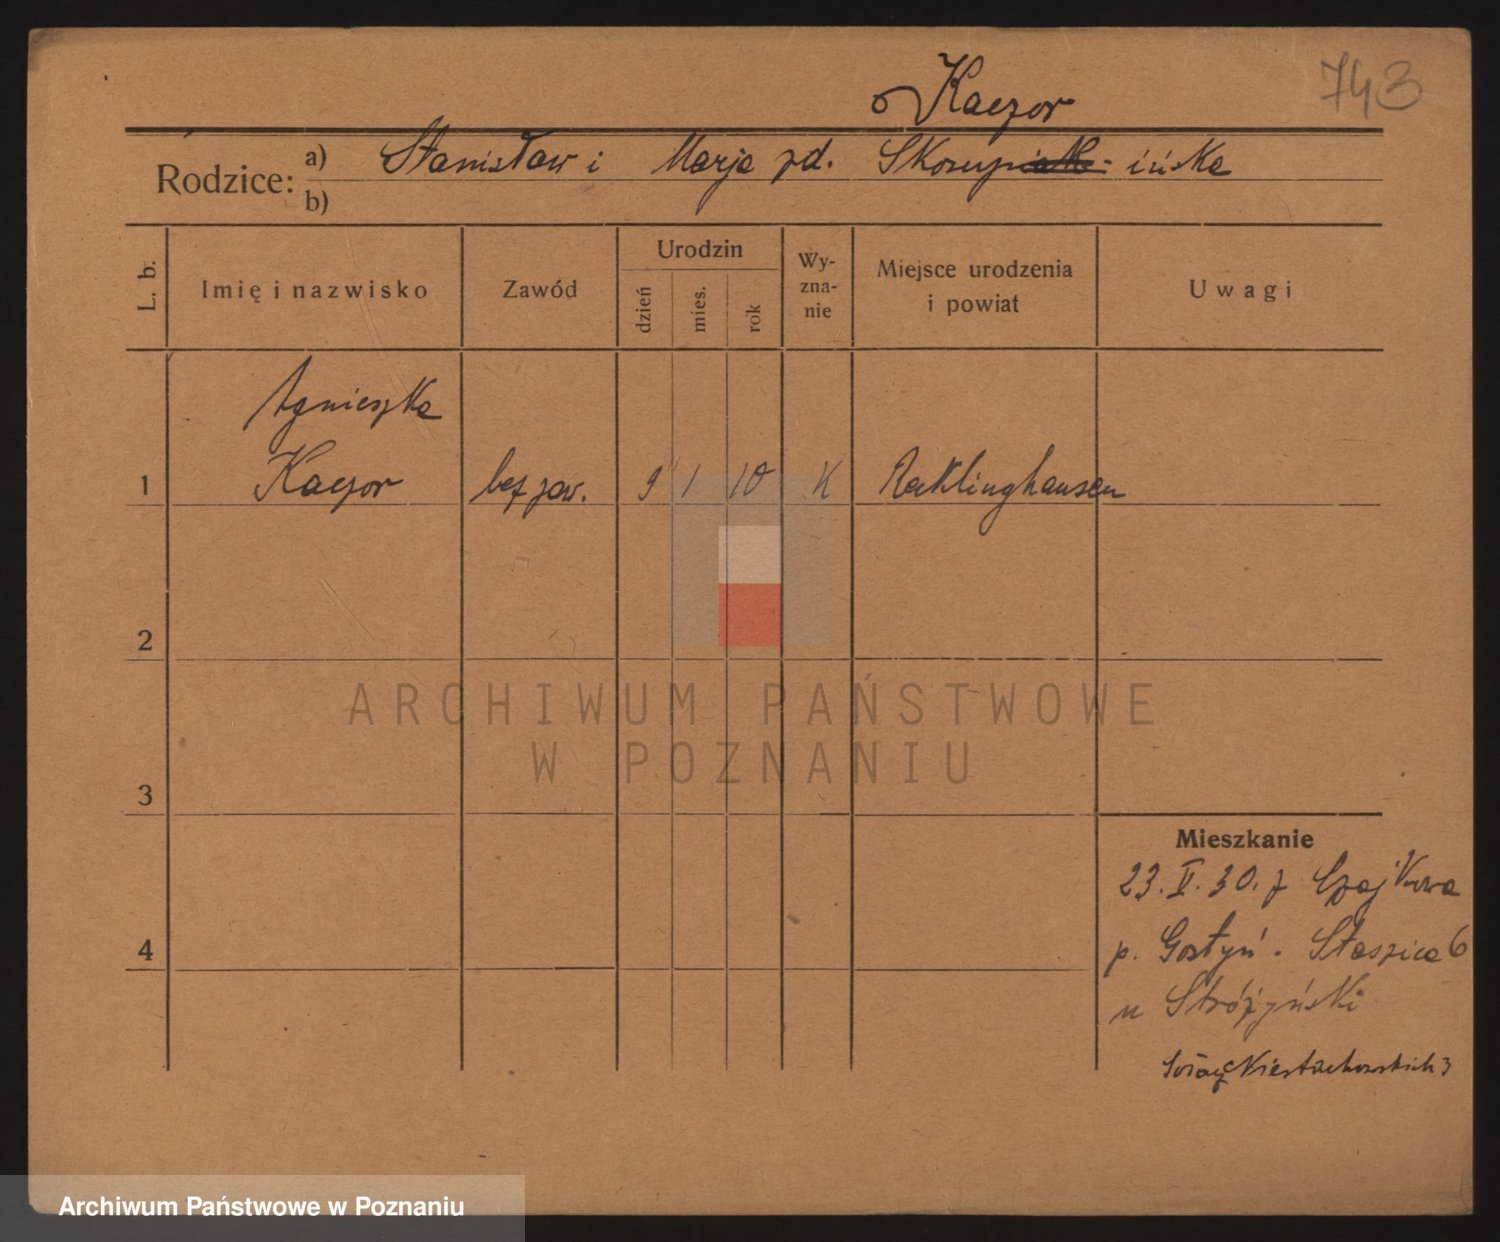 743
Kaczor
Rodzice: a) Stanisław i Marja zd. Skorupińska
b)
L. b.
Imię i nazwisko
Zawód
Urodzin
dzień
mies.
rok
Wy-
zna-
nie
Miejsce urodzenia
i powiat
Uwagi
Agnieszka
1 Kaczor bez zaw. 9 1 10 K Recklinghausen
2
3
4
ARCHIWUM PAŃSTWOWE
W POZNANIU
Mieszkanie
23. V. 30. z Czajkowa
p. Gostyń. Staszica 6
u Stróżyński
3
Archiwum Państwowe w Poznaniu